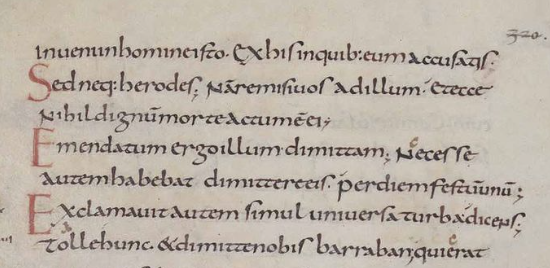 320.
inueniinhomineisto. Exhisinquib: eumaccusatis.
Sedneq: herodes; Nāremisiuos adillum. Etecce
Nihildignūmorteactumē ei;
Emendatum ergoillum dimittam; Necesse
autemhabebat dimittereeis. perdiemfestūunū;
Exclamauit autem simul uniuersa turbadicens;
tollehunc. &dimittenobis barraban; quierat